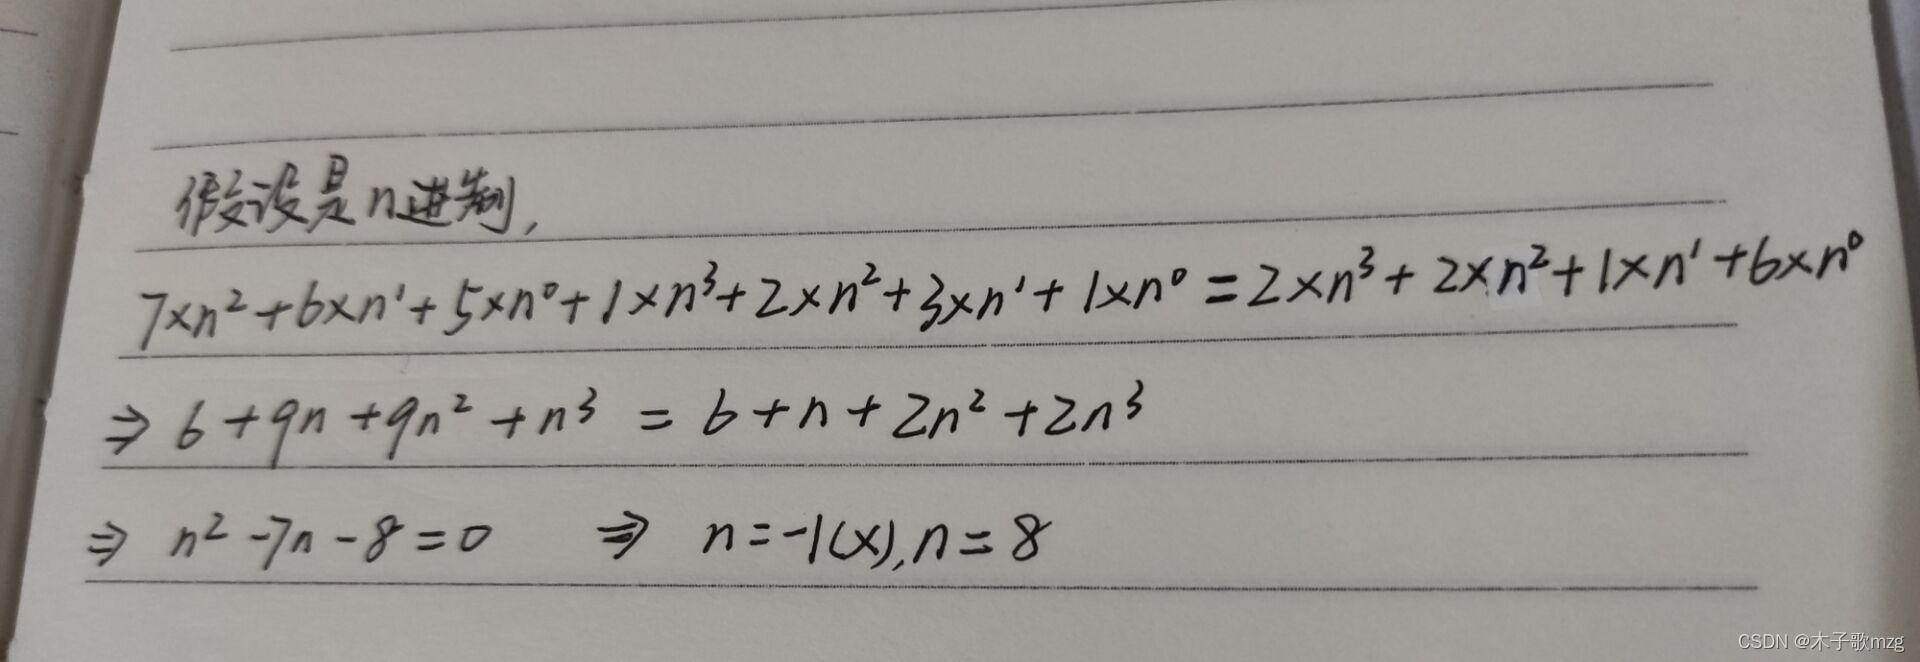 假设是n进制,
7×n²+6×n¹+5×n⁰+1×n³+2×n²+3×n¹+1×n⁰=2×n³+2×n²+1×n¹+6×n⁰
⇒ 6+9n+9n²+n³ = 6+n+2n²+2n³
⇒ n²-7n-8=0 ⇒ n=-1(×),n=8
CSDN @木子歌mzg